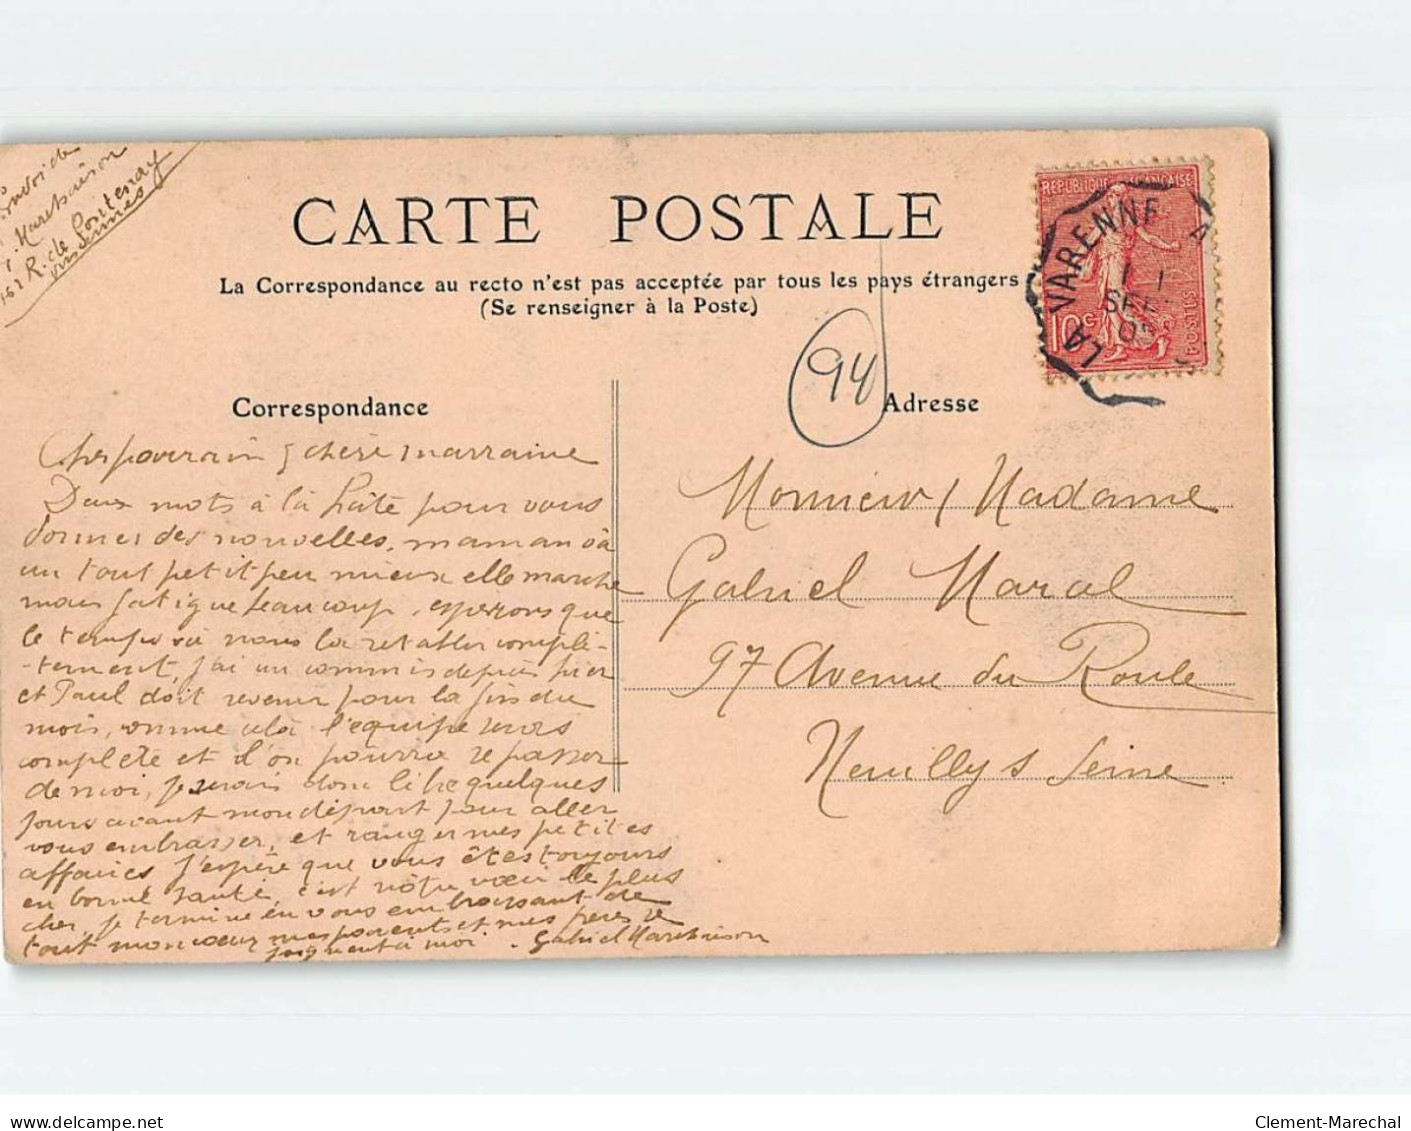 Envoi de
G. Marchaison
162 R. de Fontenay
Vincennes
CARTE POSTALE
La Correspondance au recto n'est pas acceptée par tous les pays étrangers
(Se renseigner à la Poste)
REPUBLIQUE FRANÇAISE
10c
POSTES
LA VARENNE
4
1 1
SEPT
05
94
Correspondance
Adresse
Cher parrain & chère marraine
Deux mots à la hâte pour vous
donner des nouvelles, maman va
un tout petit peu mieux elle marche
mais fatigue beaucoup, esperons que
le temps va nous la retablir complè-
-tement, j'ai un commis depuis hier
et Paul doit revenir pour la fin du
mois, comme celà l'equipe sera
complète et l'on pourra se passer
de moi, je serais donc libre quelques
jours avant mon départ pour aller
vous embrasser, et ranger mes petites
affaires J'espère que vous êtes toujours
en bonne santé, c'est nôtre voeu le plus
cher, je termine en vous embrassant de
tout mon coeur mes parents et mes frères se
joignent à moi. Gabriel Marchaison
Monsieur / Madame
Gabriel Maral
97 Avenue du Roule
Neuilly s Seine
delcampe.net
Clement-Marechal